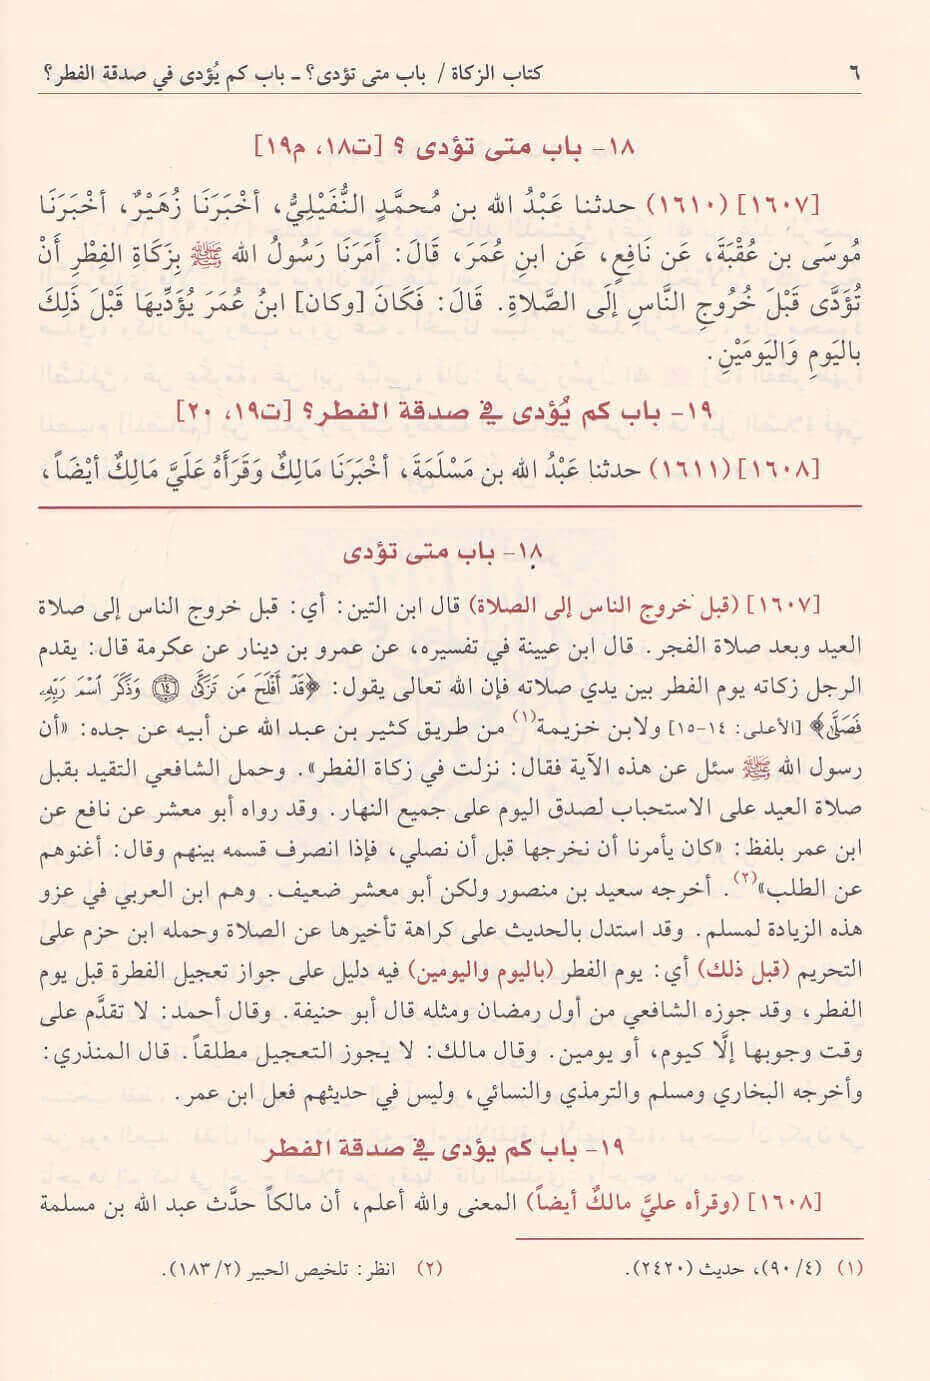 ٦ كتاب الزكاة / باب متى تؤدى؟ ــ باب كم يُؤدى في صدقة الفطر؟
١٨- باب متى تؤدى ؟ [ت١٨، م١٩]
[١٦٠٧] (١٦١٠) حدثنا عَبْدُ الله بن مُحمَّدٍ النُّفَيْلِيُّ، أخْبَرَنَا زُهَيْرٌ، أخْبَرَنَا
مُوسَى بن عُقْبَةَ، عَن نَافِعٍ، عَن ابنِ عُمَرَ، قَالَ: أمَرَنَا رَسُولُ الله ﷺ بِزَكَاةِ الفِطْرِ أنْ
تُؤَدَّى قَبْلَ خُرُوجِ النَّاسِ إلَى الصَّلاةِ. قَالَ: فَكَانَ [وكان] ابنُ عُمَرَ يُؤَدِّيهَا قَبْلَ ذَلِكَ
بالْيَومِ وَاليَومَيْنِ.
١٩- باب كم يُؤدى في صدقة الفطر؟ [ت١٩، ٢٠]
[١٦٠٨] (١٦١١) حدثنا عَبْدُ الله بن مَسْلَمَةَ، أخْبَرَنَا مَالِكٌ وَقَرَأهُ عَلَيَّ مَالِكٌ أيْضَاً،
١٨- باب متى تؤدى
[١٦٠٧] (قبل خروج الناس إلى الصلاة) قال ابن التين: أي: قبل خروج الناس إلى صلاة
العيد وبعد صلاة الفجر. قال ابن عيينة في تفسيره، عن عمرو بن دينار عن عكرمة قال: يقدم
الرجل زكاته يوم الفطر بين يدي صلاته فإن الله تعالى يقول: ﴿قَدْ أَفْلَحَ مَن تَزَكَّىٰ ﴿١٤﴾ وَذَكَرَ ٱسْمَ رَبِّهِۦ
فَصَلَّىٰ﴾ [الأعلى: ١٤-١٥] ولابن خزيمة(١) من طريق كثير بن عبد الله عن أبيه عن جده: «أن
رسول الله ﷺ سئل عن هذه الآية فقال: نزلت في زكاة الفطر». وحمل الشافعي التقيد بقبل
صلاة العيد على الاستحباب لصدق اليوم على جميع النهار. وقد رواه أبو معشر عن نافع عن
ابن عمر بلفظ: «كان يأمرنا أن نخرجها قبل أن نصلي، فإذا انصرف قسمه بينهم وقال: أغنوهم
عن الطلب»(٢). أخرجه سعيد بن منصور ولكن أبو معشر ضعيف. وهم ابن العربي في عزو
هذه الزيادة لمسلم. وقد استدل بالحديث على كراهة تأخيرها عن الصلاة وحمله ابن حزم على
التحريم (قبل ذلك) أي: يوم الفطر (باليوم واليومين) فيه دليل على جواز تعجيل الفطرة قبل يوم
الفطر، وقد جوزه الشافعي من أول رمضان ومثله قال أبو حنيفة. وقال أحمد: لا تقدَّم على
وقت وجوبها إلَّا كيوم، أو يومين. وقال مالك: لا يجوز التعجيل مطلقاً. قال المنذري:
وأخرجه البخاري ومسلم والترمذي والنسائي، وليس في حديثهم فعل ابن عمر.
١٩- باب كم يؤدى في صدقة الفطر
[١٦٠٨] (وقرأه عليَّ مالكٌ أيضاً) المعنى والله أعلم، أن مالكاً حدَّث عبد الله بن مسلمة
(١) (٤/ ٩٠)، حديث (٢٤٢٠). (٢) انظر: تلخيص الحبير (٢/ ١٨٣).